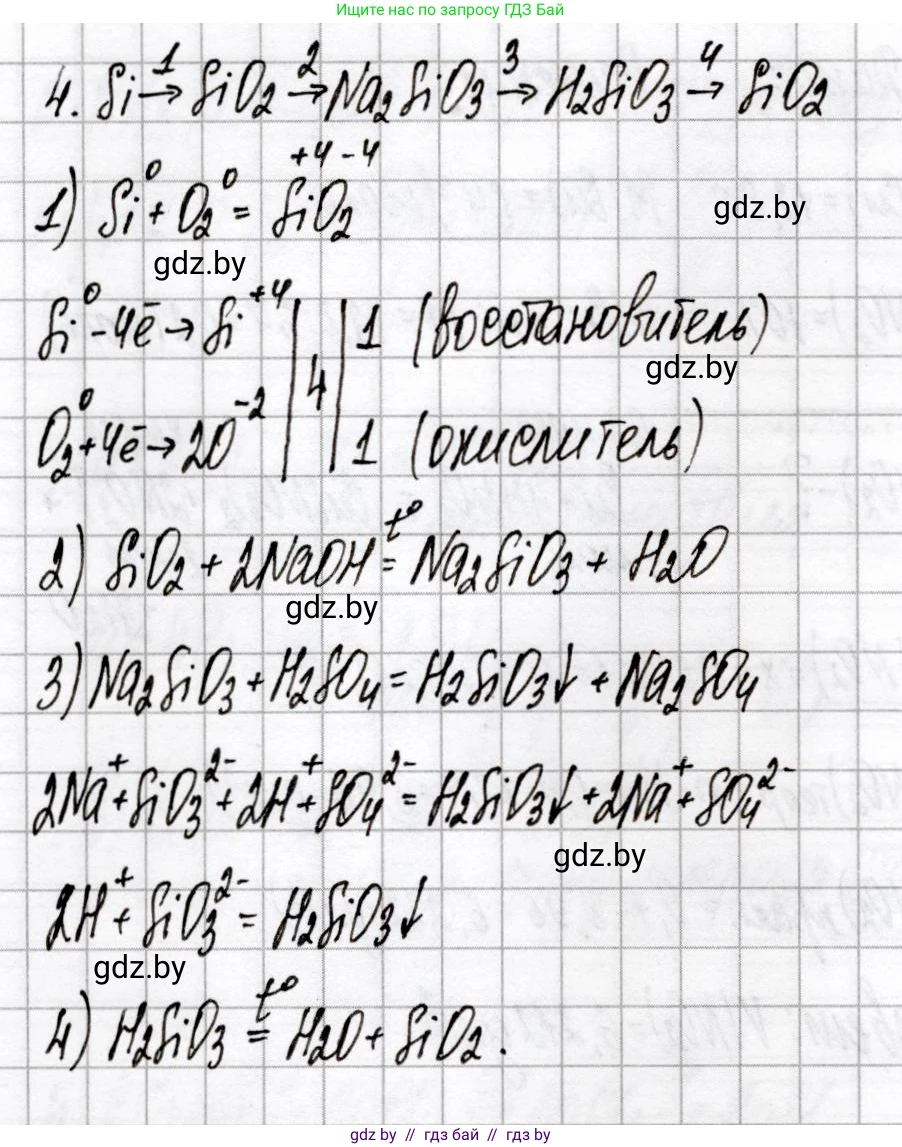 Ищите нас по запросу ГДЗ Бай
4. Si →¹ SiO₂ →² Na₂SiO₃ →³ H₂SiO₃ →⁴ SiO₂
1) Si⁰ + O₂⁰ = Si⁺⁴O₂⁻⁴
gdz.by
gdz.by
Si⁰ - 4ē → Si⁺⁴ | | 1 (восстановитель)
gdz.by
4
O₂⁰ + 4ē → 2O⁻² | | 1 (окислитель)
2) SiO₂ + 2NaOH =t° Na₂SiO₃ + H₂O
gdz.by
3) Na₂SiO₃ + H₂SO₄ = H₂SiO₃↓ + Na₂SO₄
2Na⁺ + SiO₃²⁻ + 2H⁺ + SO₄²⁻ = H₂SiO₃↓ + 2Na⁺ + SO₄²⁻
gdz.by
2H⁺ + SiO₃²⁻ = H₂SiO₃↓
gdz.by
4) H₂SiO₃ =t° H₂O + SiO₂.
gdz.by // гдз бай // gdz.by